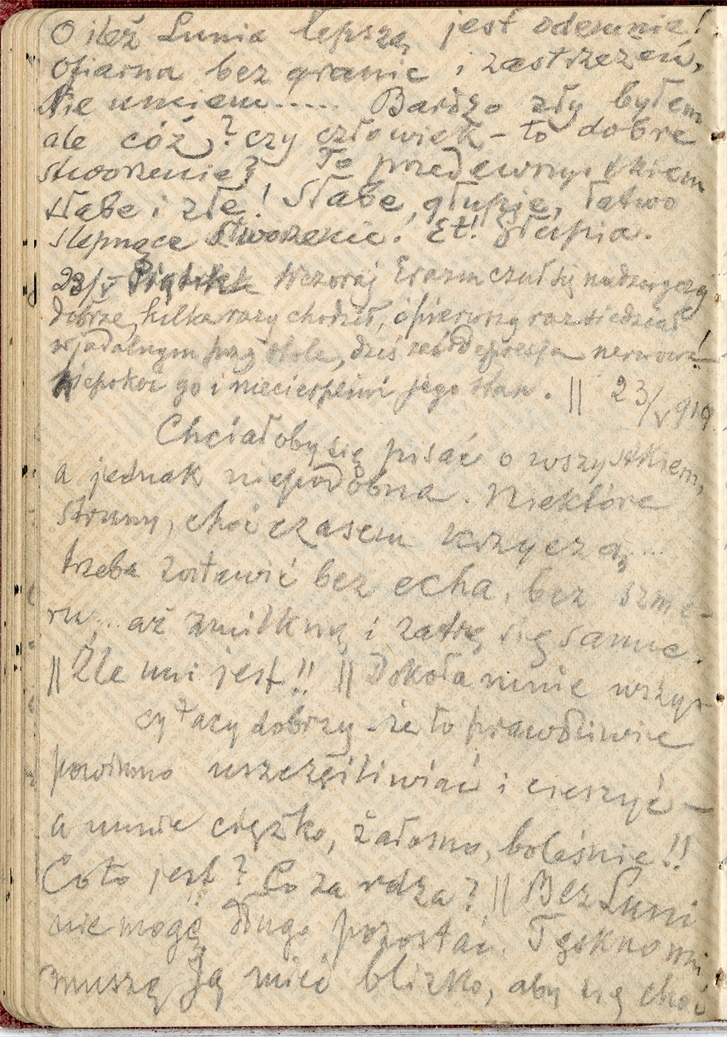 O ileż Lunia lepszą jest odemnie!
Ofiarna bez granic i zastrzeżeń,
Nie umiem..... Bardzo zły byłem
ale cóż? czy człowiek – to dobre
stworzenie? To przedewszystkiem
słabe i złe! Słabe, głupie, łatwo
ślepnące stworzenie! Et!
23/V Piątek Wczoraj Erazm czuł się nadzwyczaj
dobrze, kilka razy chodził, i pierwszy raz siedział
w jadalnym przy stole, dziś zaś depresja nerwowa!
Niepokoi go i niecierpliwi jego stan. || 23/V 919
Chciałoby się pisać o wszystkiem,
a jednak niepodobna. Niektóre
struny, choć czasem krzyczą,...
trzeba zostawić bez echa, bez szme-
ru... aż zmilkną i zatrą się same.
|| Źle mi jest!! || Dokoła mnie wszys-
cy tacy dobrzy – że to prawdziwie
powinno uszczęśliwiać i cieszyć –
a mnie ciężko, żałosno, boleśnie!!
Co to jest? Co za rdza? || Bez Luni
nie mogę długo pozostać. Tęskno mi,
muszę Ją mieć blizko, aby się choć